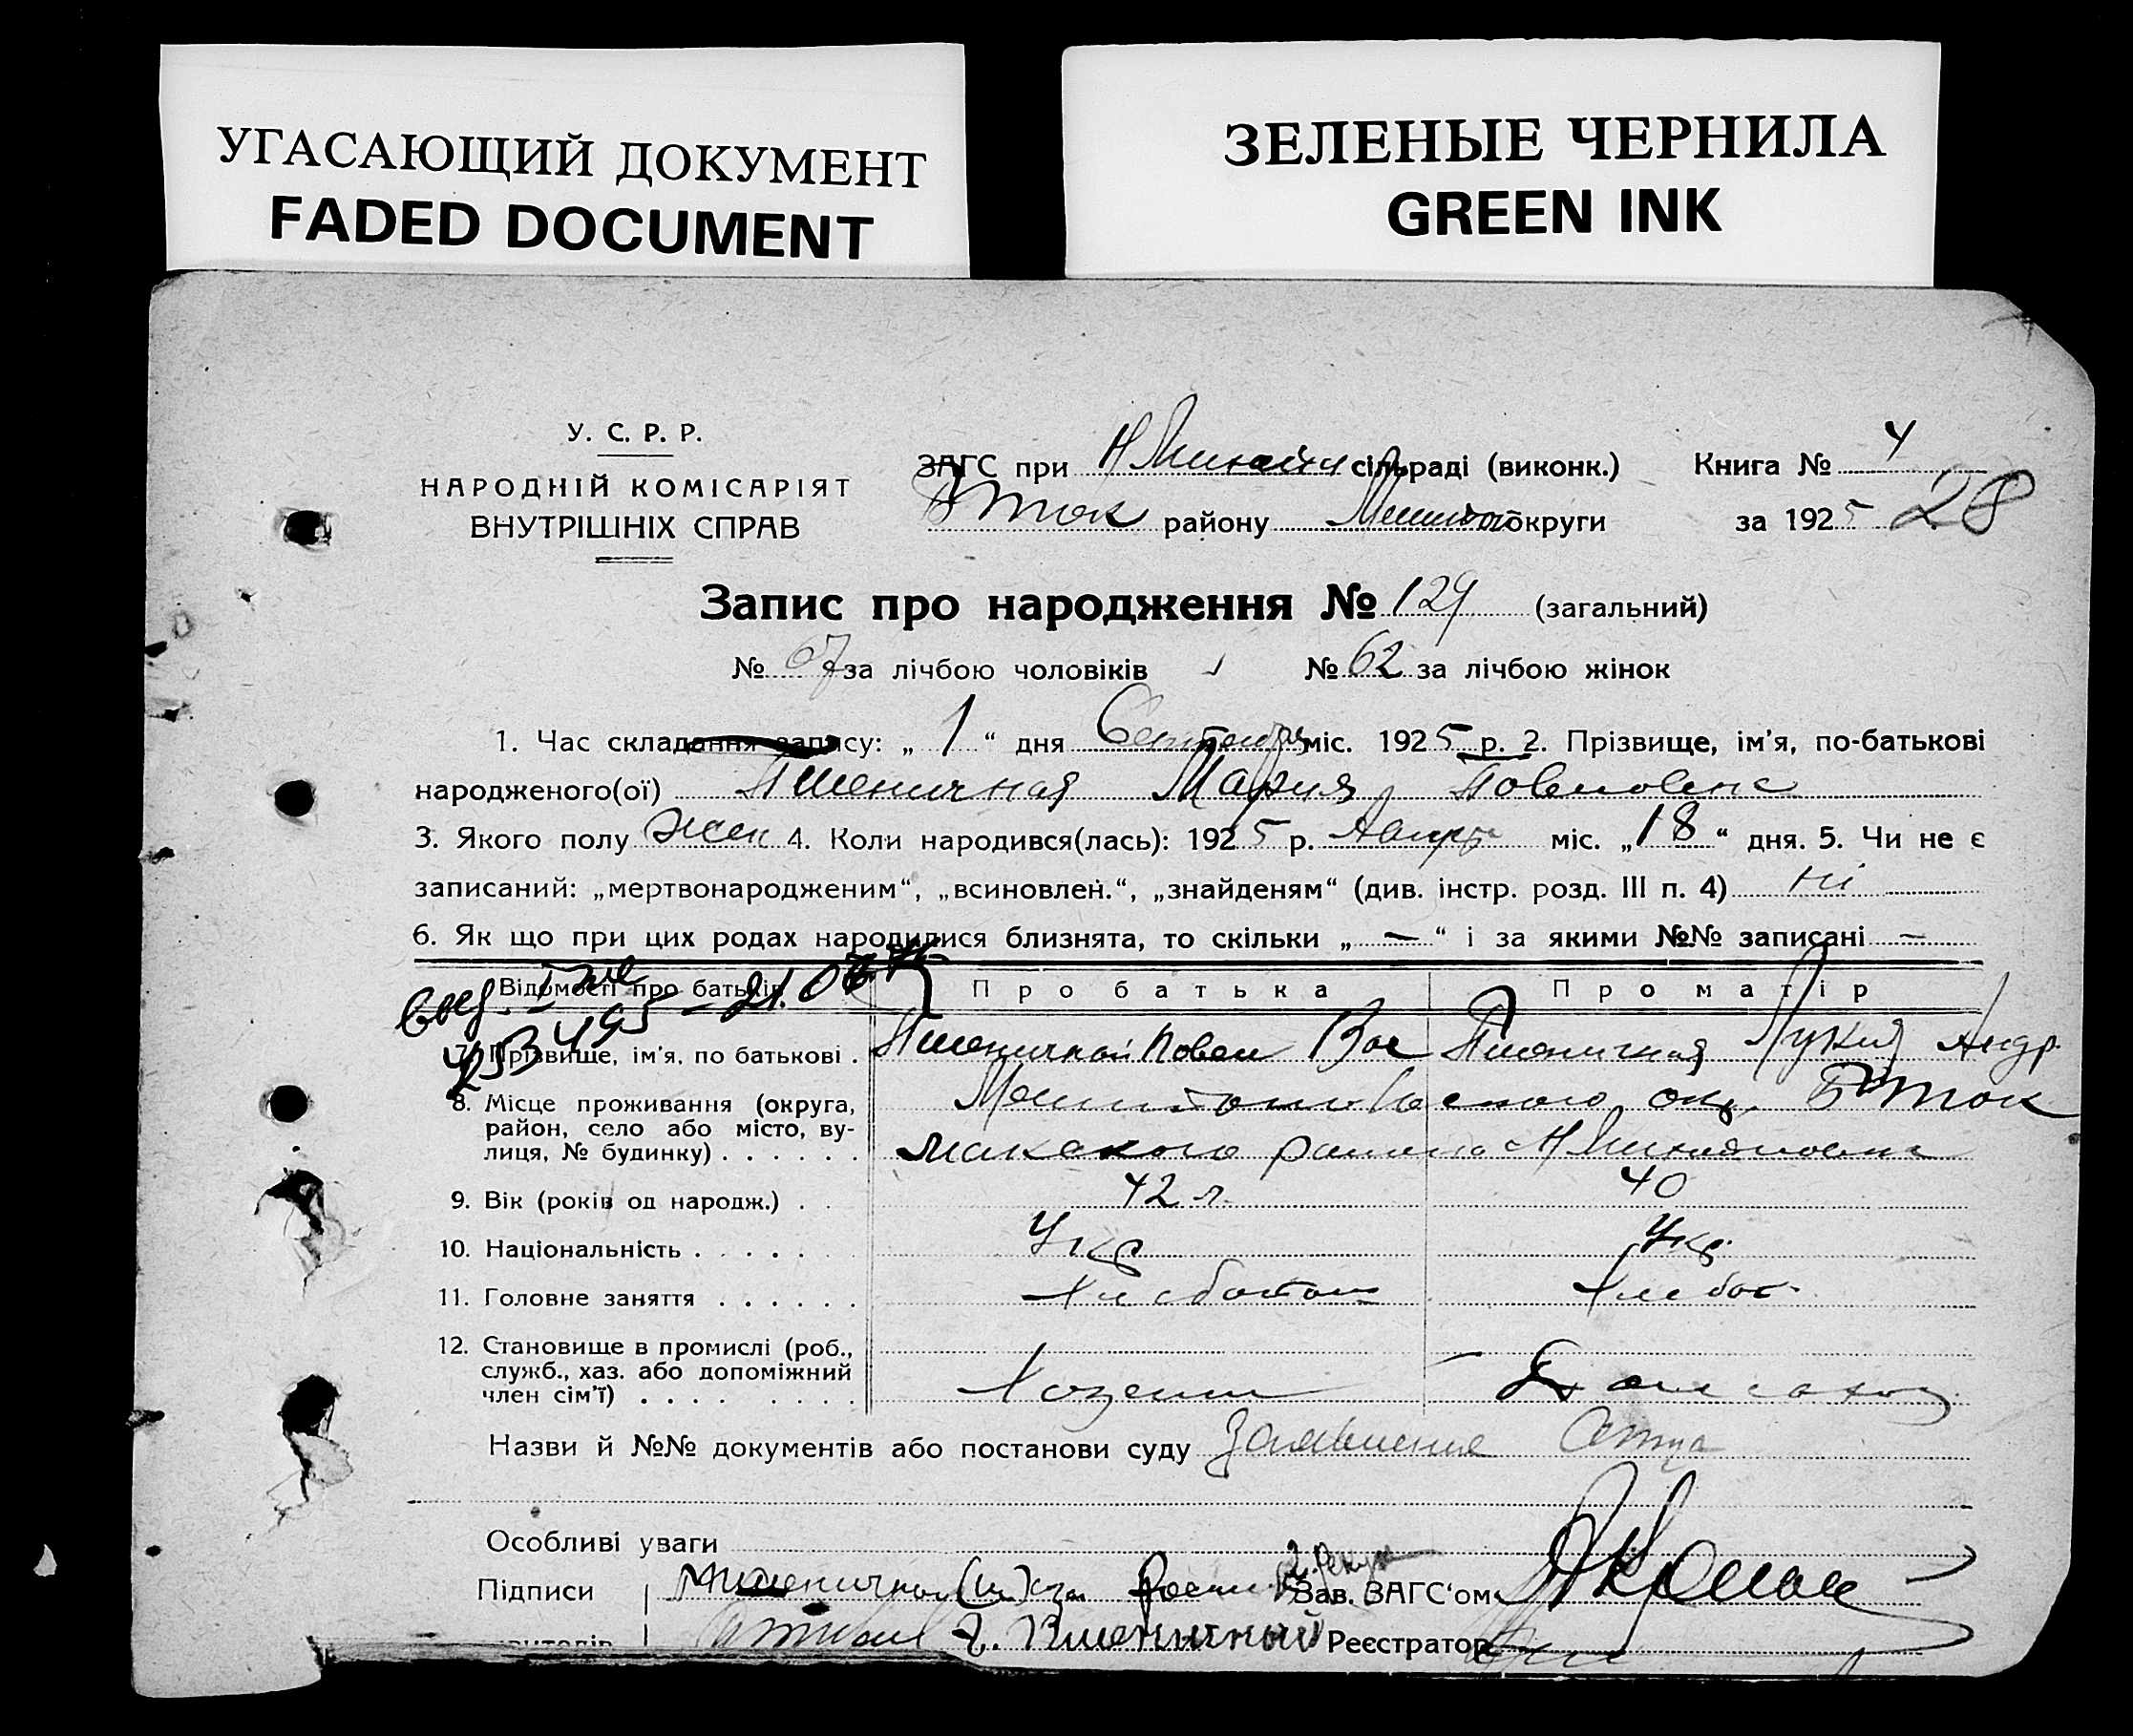 УГАСАЮЩИЙ ДОКУМЕНТ
FADED DOCUMENT
ЗЕЛЕНЫЕ ЧЕРНИЛА
GREEN INK
У. С. Р. Р.
НАРОДНІЙ КОМІСАРІЯТ
ВНУТРІШНІХ СПРАВ
ЗАГС при сільраді (виконк.) Книга № 4
Бток району округи за 1925 28
Запис про народження № 129 (загальний)
№ 67 за лічбою чоловіків № 62 за лічбою жінок
1. Час складання запису: „ 1 “ дня Сентября міс. 1925 р. 2. Прізвище, ім'я, по-батькові
народженого(ої) Пшеничная Мария Павловна
3. Якого полу жен 4. Коли народився(лась): 1925 р. Август міс. „ 18 “ дня. 5. Чи не є
записаний: „мертвонародженим“, „всиновлен.“, „знайденям“ (див. інстр. розд. III п. 4) ні
6. Як що при цих родах народилися близнята, то скільки „ — “ і за якими №№ записані —
Відомості про батьків Про батька Про матір
7. Прізвище, ім'я, по батькові . Пшеничной Павел Вас Пшеничная Лукия Андр.
8. Місце проживання (округа, район, село або місто, вулиця, № будинку) . . . . . . окр. Бток
макского
9. Вік (років од народж.) . . 42 л. 40
10. Національність . . . . . . Укр Укр.
11. Головне заняття . . . . . . Хлебопаш Хлебоп
12. Становище в промислі (роб., служб., хаз. або допоміжний член сім'ї) . . . . . . . . Хозеин
Назви й №№ документів або постанови суду Заявление Отца
Особливі уваги
Підписи Пшеничной Зав. ЗАГС'ом
Пшеничный Реєстратор